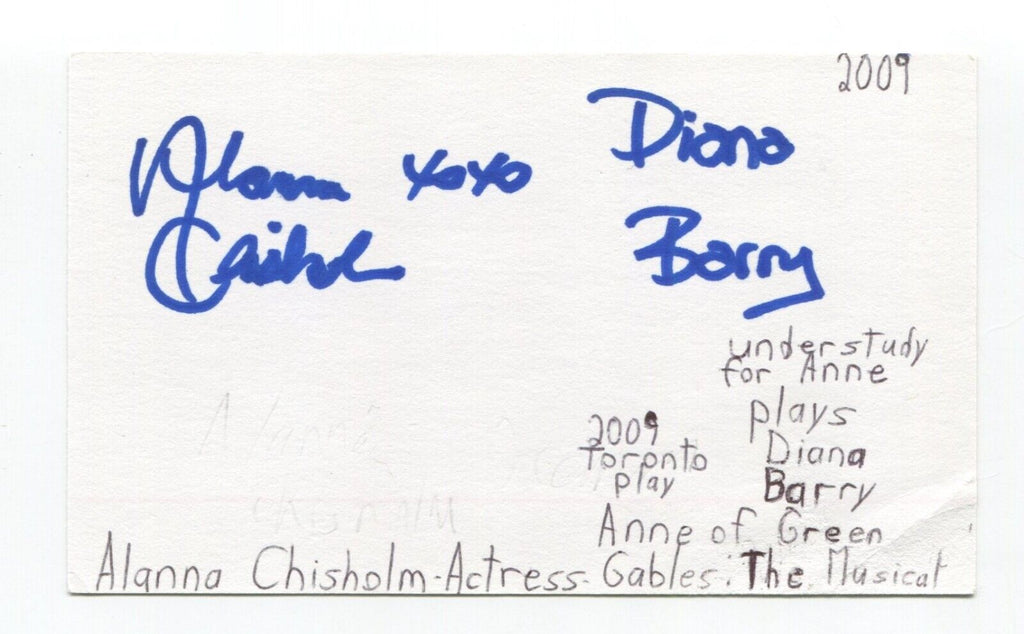 2009
Alanna xoxo
Chisholm
Diana
Barry
understudy
for Anne
plays
Diana
Barry
2009
Toronto
play
Anne of Green
Alanna Chisholm-Actress-Gables: The Musical